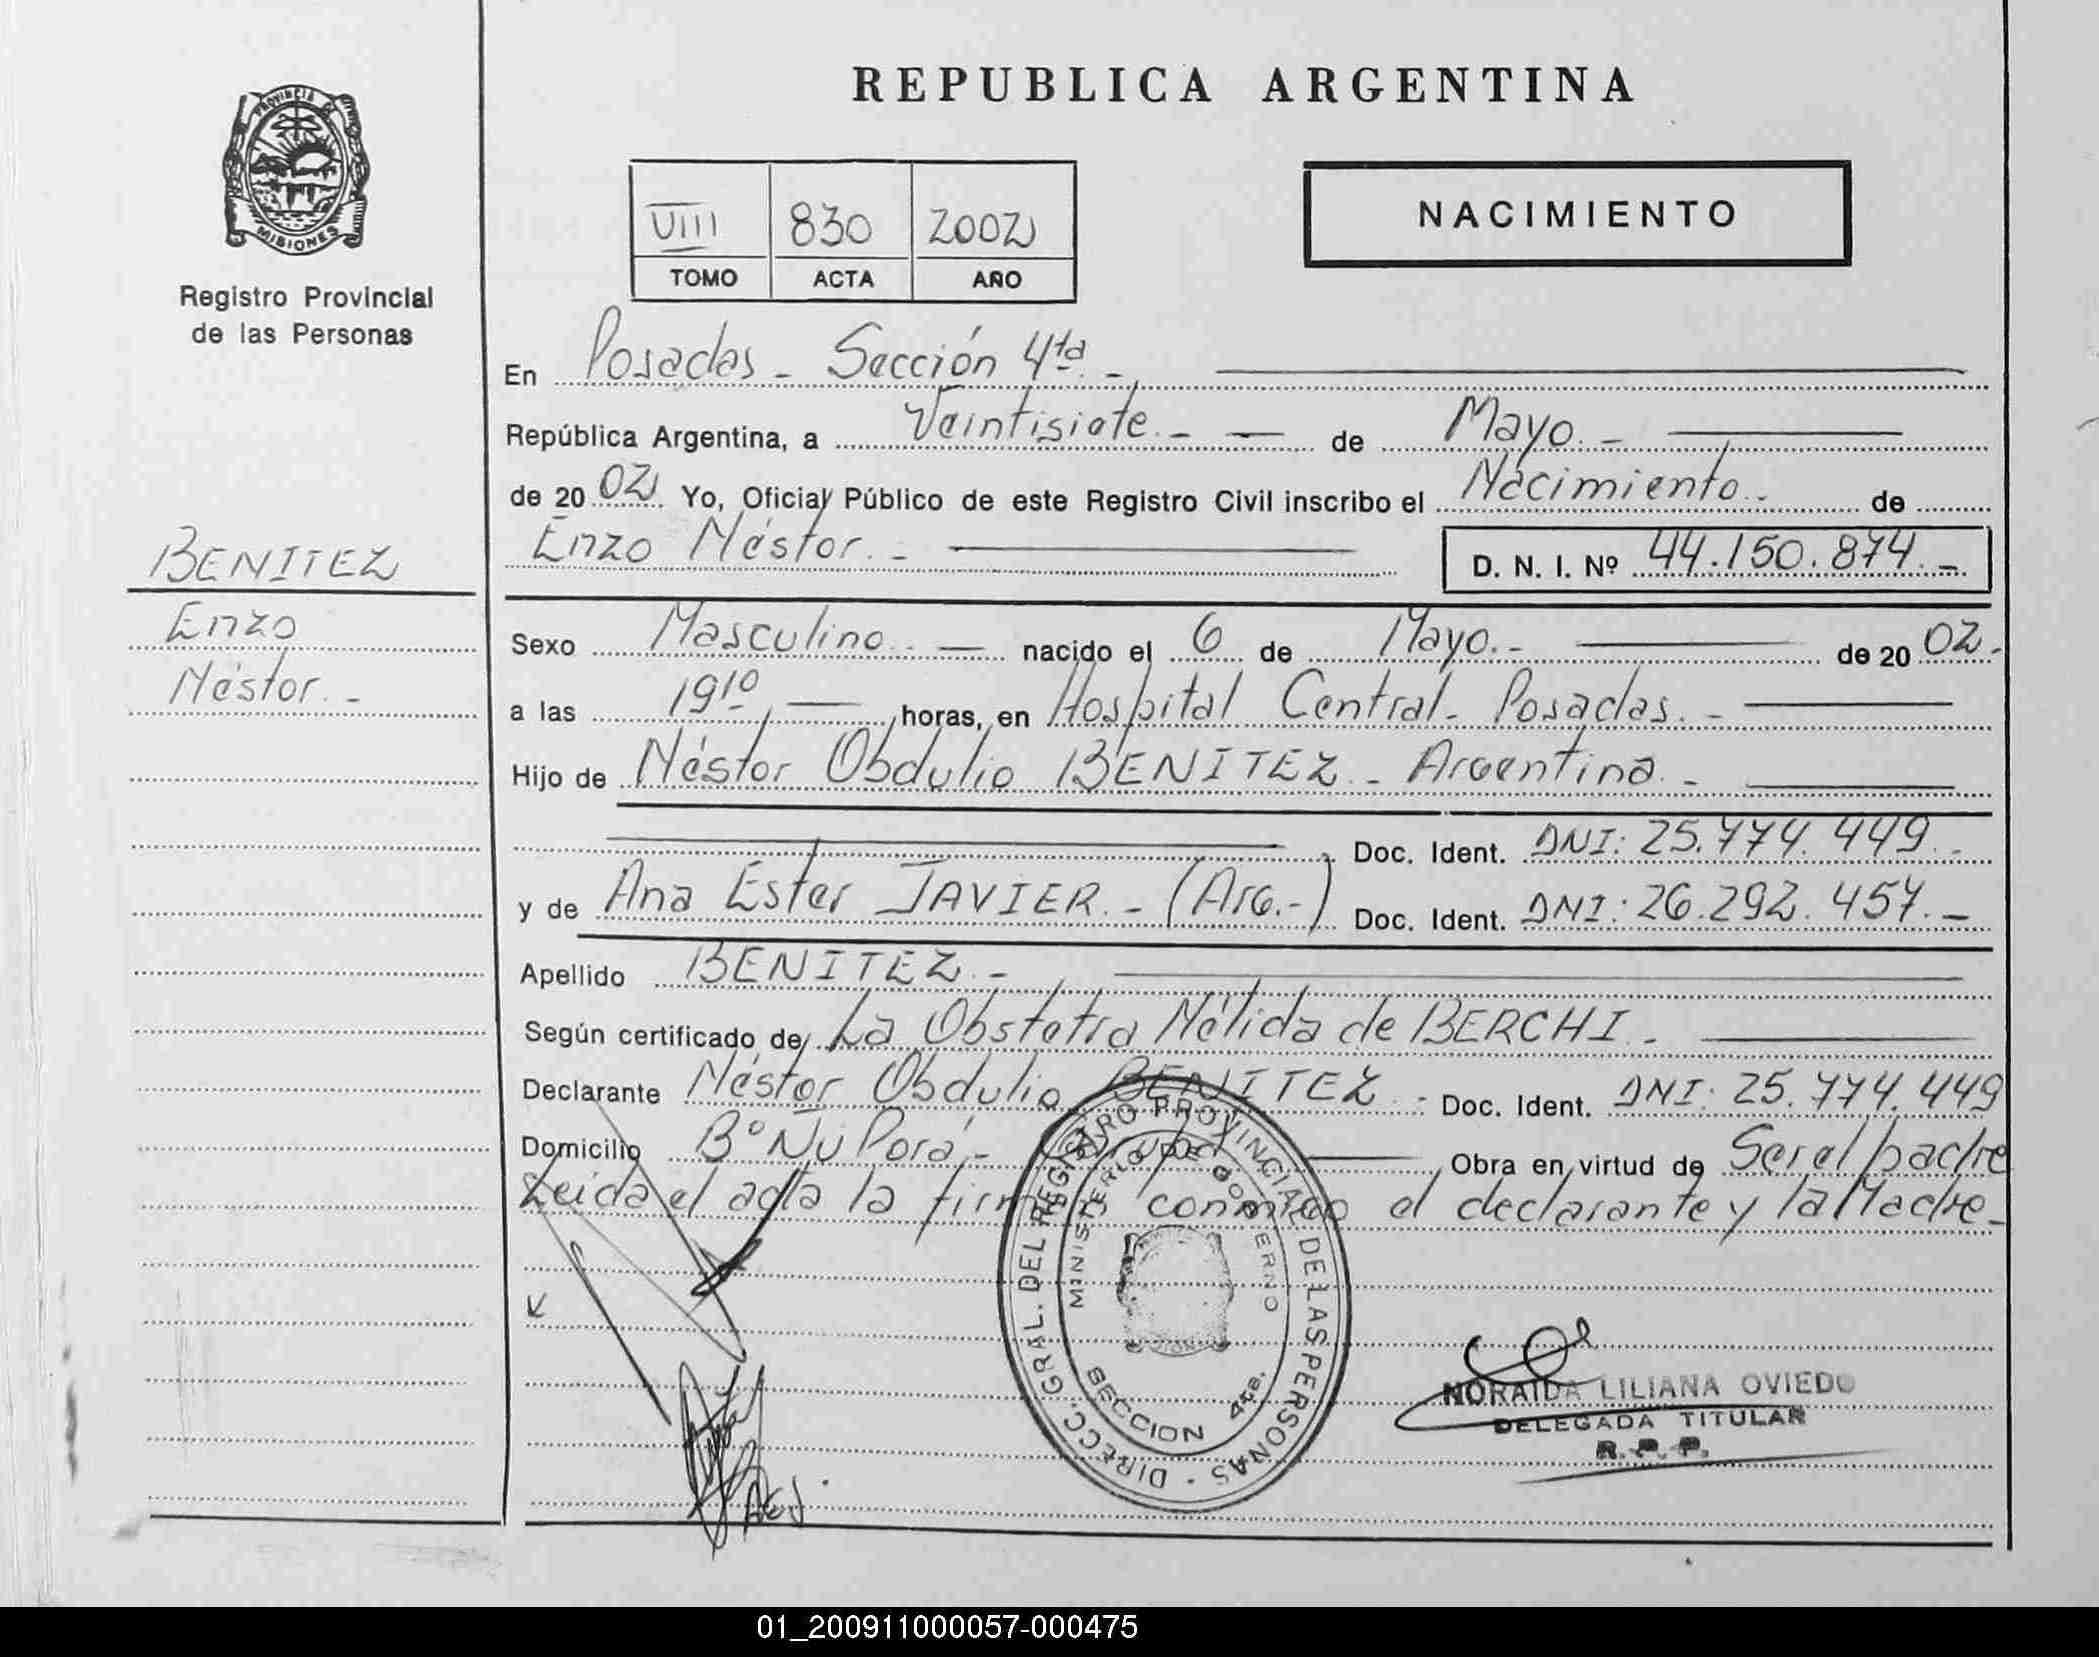 REPUBLICA ARGENTINA
PROVINCIA DE
MISIONES
Registro Provincial
de las Personas
VIII 830 2002
TOMO ACTA AÑO
NACIMIENTO
En Posadas - Sección 4ta. -
República Argentina, a Veintisiete. - de Mayo. -
de 20 02 Yo, Oficial Público de este Registro Civil inscribo el Nacimiento. de
Enzo Néstor. -
D. N. I. Nº 44.150.874. -
BENITEZ
Enzo
Néstor. -
Sexo Masculino. - nacido el 6 de Mayo. - de 20 02.
a las 19 10 horas, en Hospital Central - Posadas. -
Hijo de Néstor Obdulio BENITEZ - Argentina. -
Doc. Ident. DNI: 25.774.449. -
y de Ana Ester JAVIER. - (Arg. -) Doc. Ident. DNI: 26.292.457. -
Apellido BENITEZ. -
Según certificado de La Obstetra Nélida de BERCHI. -
Declarante Néstor Obdulio BENITEZ - Doc. Ident. DNI: 25.774.449
Domicilio Bº Ñu Porá - Garupá Obra en virtud de Ser el padre
Leída el acta la firman conmigo el declarante y la Madre. -
DIRECC. GRAL. DEL REGISTRO PROVINCIAL DE LAS PERSONAS -
MINISTERIO DE GOBIERNO
SECCION 4ta.
NORAIDA LILIANA OVIEDO
DELEGADA TITULAR
R. P. P.
AEJ
01_200911000057-000475